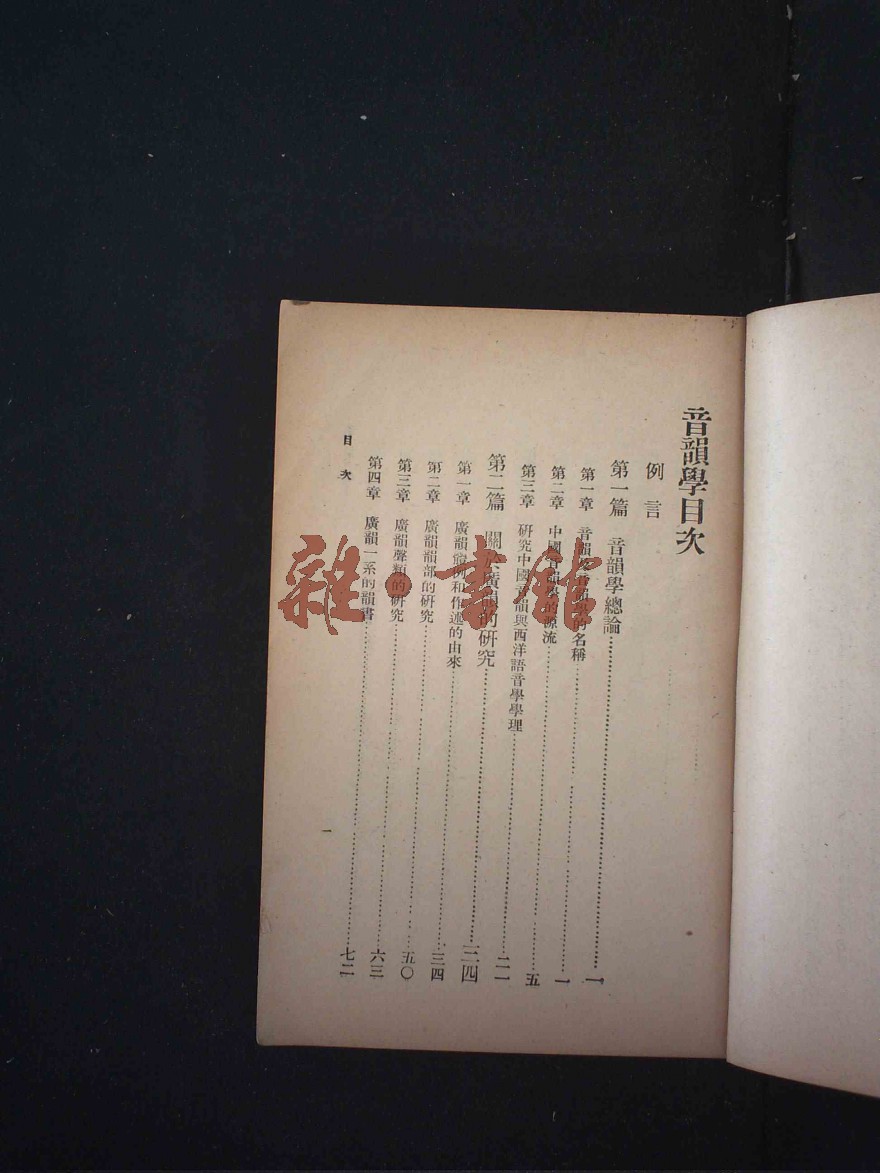 音韻學目次
例言
第一篇 音韻學總論……一
第一章 音韻音韻學的名稱……一
第二章 中國音韻學的源流……五
第三章 研究中國音韻與西洋語音學學理……二一
第二篇 關於廣韻的研究……三四
第一章 廣韻體例和作述的由來……三四
第二章 廣韻韻部的研究……五〇
第三章 廣韻聲類的研究……六三
第四章 廣韻一系的韻書……七二
目次
一
雜·書館